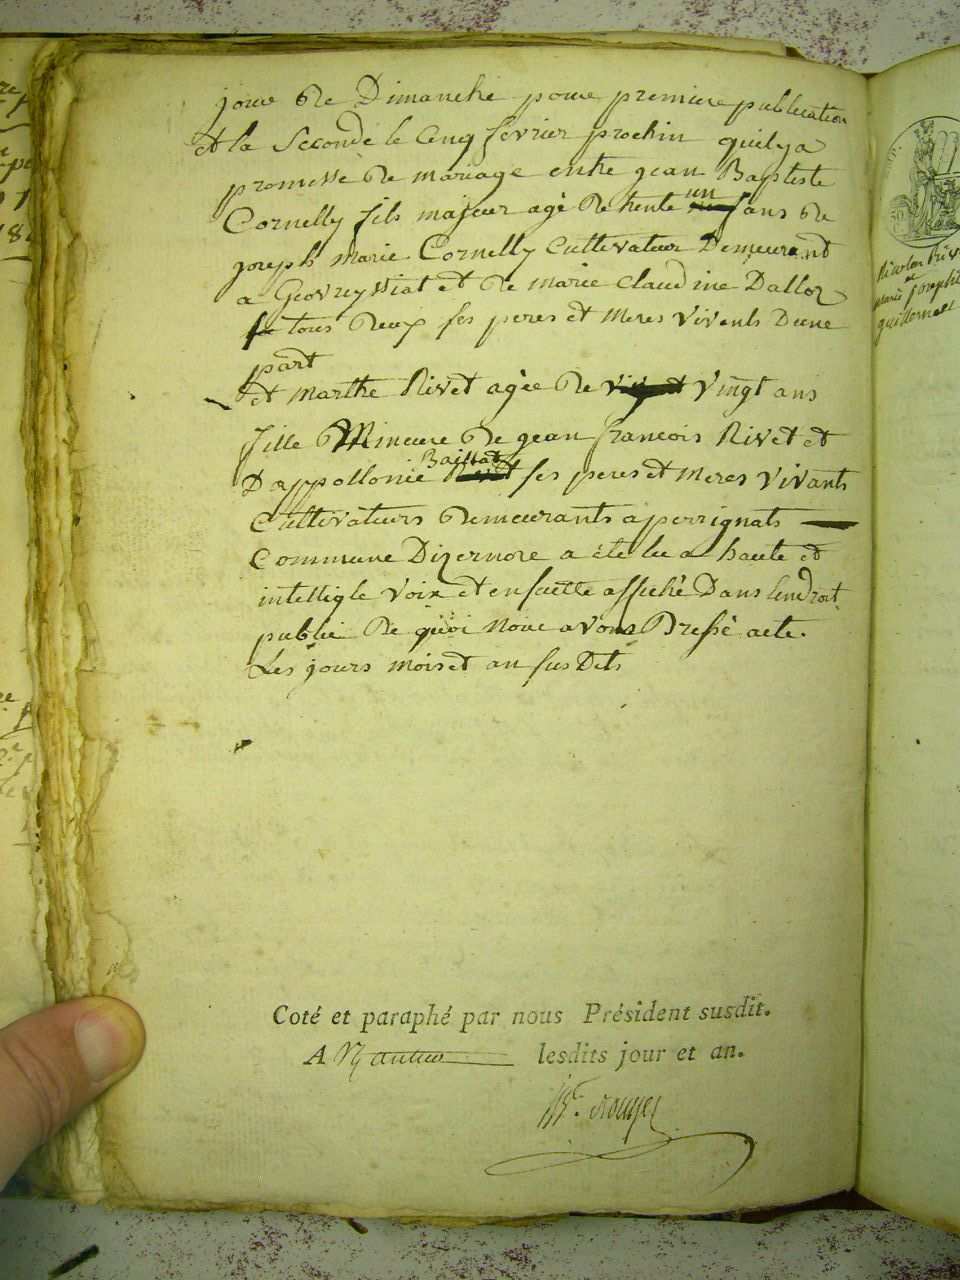 jour de Dimanche pour premiere publication
et la Seconde le Cinq fevrier prochin quil ya
promesse de mariage entre jean Baptiste
Cornelly fils majeur agé de trente un ans de
joseph Marie Cornelly Cultivateur Demeurant
a Geovreyssiat et de marie Claudine Dalloz
tous deux ses peres et Meres vivents Dune
part
et Marthe Rivet agée de vingt ans
fille Mineure de jean francois Rivet et
Dappollonie Baillat ses peres et Meres vivants
Cultivateurs demeurants a perrignats
Commune Dizernore a été lu a haute et
intelligle voix et ensuitte affiché Dans lendroit
public de quoi Nous avons Dressé acte.
Les jours mois et an susDits
Coté et paraphé par nous Président susdit.
A Nantua lesdits jour et an.
Nicolas Rive
et
marie josephte
guillermet